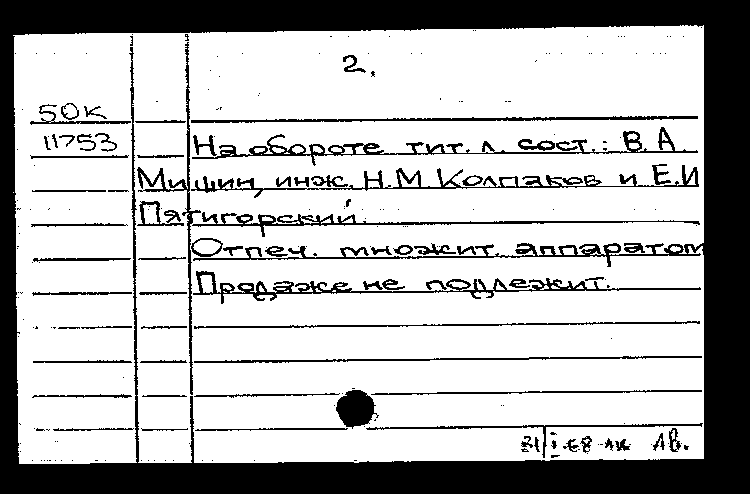 2.
50К
11753 На обороте тит. л. сост.: В.А.
Мишин, инж. Н.М. Колпаков и Е.И.
Пятигорский.
Отпеч. множит. аппаратом
Продаже не подлежит.
31/I-68 АВ.